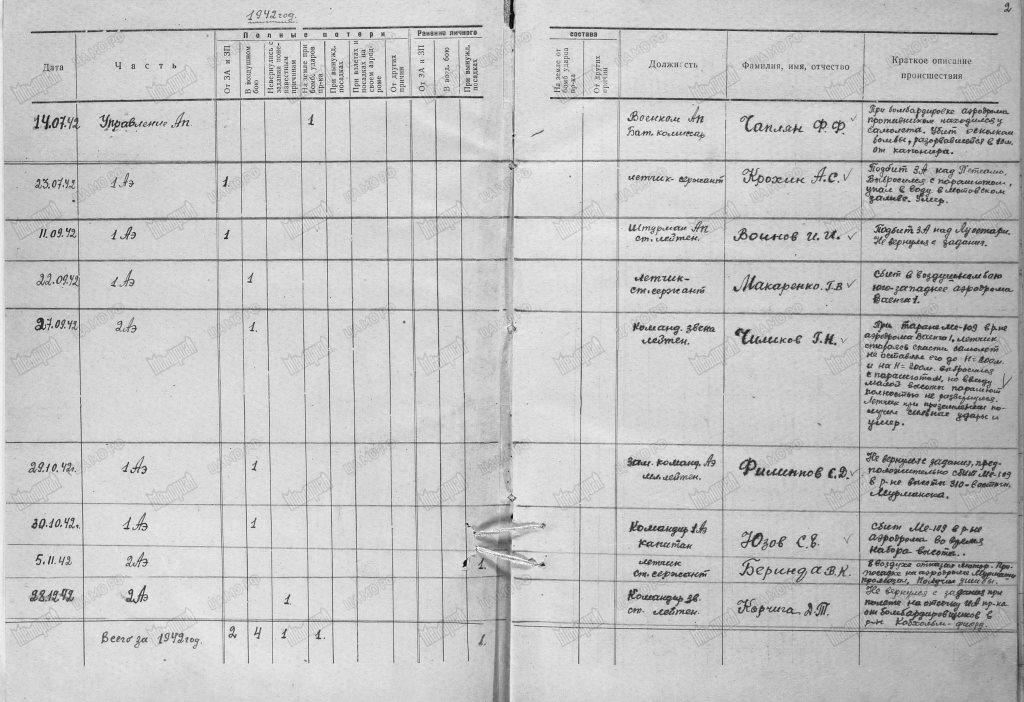 1942 год.
2
Полные потери
Ранение личного
состава
Дата
Часть
От ЗА и ЗП
В воздушном бою
Невернулись с задания понеизвестным причинам
На земле при бомб. ударов пр-ка
При вынужд. посадках
При взлетах и посадках на своем аэродроме
От других причин
От ЗА и ЗП
В возд. бою
При вынужд. посадках
На земле от бомб ударов пр-ка
От других причин
Должность
Фамилия, имя, отчество
Краткое описание
происшествия
14.07.42 Управление Ап. 1 Военком Ап
Бат. комиссар
Чаплян Ф. Ф.
При бомбардировке аэродрома
противником находился у
самолета. Убит осколком
бомбы, разорвавшейся в
от капонира.
23.07.42 1 Аэ 1 летчик-сержант Крохин А.С.
Подбит ЗА над Петсамо.
Выбросился с парашютом,
упал в воду в Мотовском
заливе. Умер.
11.09.42 1 Аэ 1 Штурман Ап
ст. лейтен.
Воинов И. И.
Подбит ЗА над Луостари.
Не вернулся с задания.
22.09.42 1 Аэ 1 летчик-
ст. сержант
Макаренко. Г.В
Сбит в воздушном бою
юго-западнее аэродрома
Ваенга 1.
27.09.42 2 Аэ 1. Команд. звена
лейтен.
Чиликов Г.Н.
При таране Ме-109 в р-не
аэродрома Ваенга 1, летчик
стараясь спасти самолет
не оставлял его до Н=200м.
и на Н=200м. выбросился
с парашютом, но ввиду
малой высоты парашют
полностью не развернулся.
Летчик при приземлении по-
лучил сильные удары и
умер.
29.10.42г. 1 Аэ 1 Зам. команд. Аэ
мл. лейтен.
Филиппов С.Д.
Не вернулся с задания, пред-
положительно сбит Ме-109
в р-не высоты 310-восточн.
Мурмашей.
30.10.42г. 1 Аэ 1 Командир 1 Аэ
капитан
Юзов С.Ъ.
Сбит Ме-109 в р-не
аэродрома во время
набора высоты.
5.11.42 2 Аэ 1. летчик
ст. сержант
Беринда В.К.
В воздухе отказал мотор. При
посадке на аэродром Мурмаши
промазал, Получил ушибы.
28.12.42 2 Аэ 1. Командир зв.
ст. лейтен.
Корчига Д.Т.
Не вернулся с задания при
полете на отсечку ИА пр-ка
от бомбардировщиков в
р-н Кобхольм-фиорд.
Всего за 1942 год. 2 4 1 1. 1.